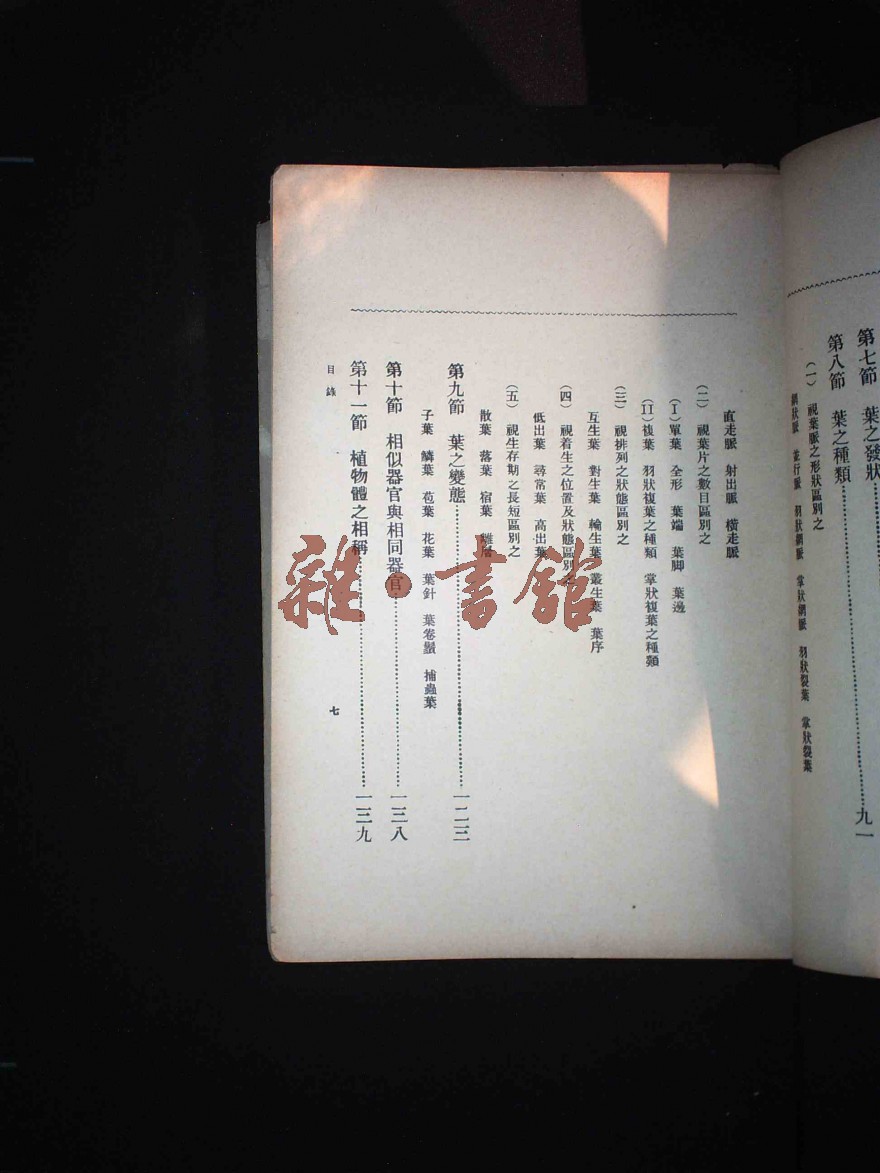 第七節　葉之發狀……九一
第八節　葉之種類
(一)　視葉脈之形狀區別之
網狀脈　並行脈　羽狀網脈　掌狀網脈　羽狀裂葉　掌狀裂葉
直走脈　射出脈　橫走脈
(二)　視葉片之數目區別之
(I)單葉　全形　葉端　葉脚　葉邊
(II)複葉　羽狀複葉之種類　掌狀複葉之種類
(三)　視排列之狀態區別之
互生葉　對生葉　輪生葉　叢生葉　葉序
(四)　視着生之位置及狀態區別之
低出葉　尋常葉　高出葉
(五)　視生存期之長短區別之
散葉　落葉　宿葉　離層
第九節　葉之變態……一二三
子葉　鱗葉　苞葉　花葉　葉針　葉卷鬚　捕蟲葉
第十節　相似器官與相同器官……一三八
第十一節　植物體之相稱……一三九
目錄
七
雜·書館